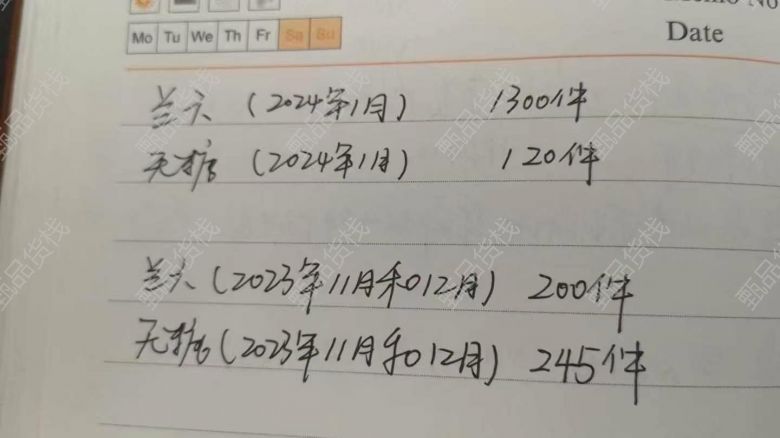 Memo No
Date
Mo Tu We Th Fr Sa Su
兰六 (2024年1月) 1300件
无糖 (2024年1月) 120件
兰六 (2023年11月和12月) 200件
无糖 (2023年11月和12月) 245件
甄品货栈